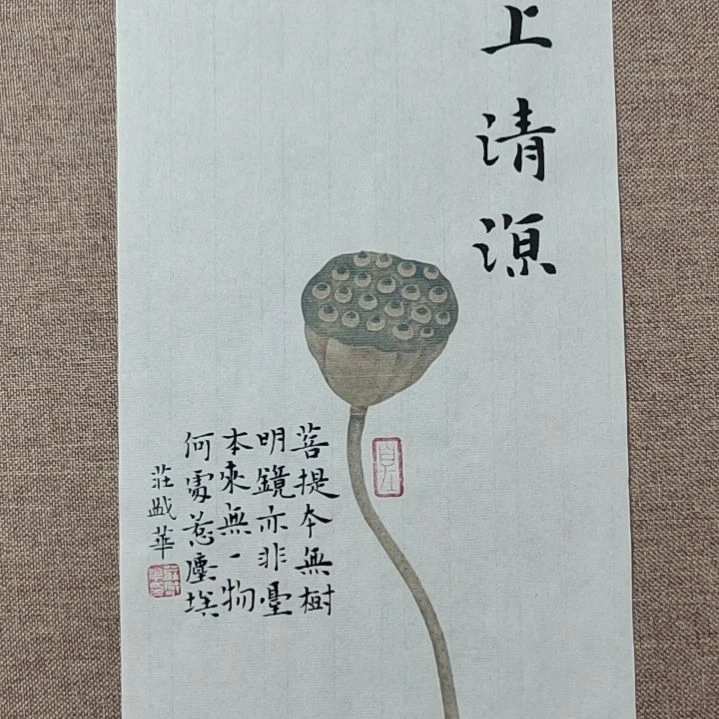 上清源
菩提本無樹
明鏡亦非臺
本來無一物
何處惹塵埃
自在